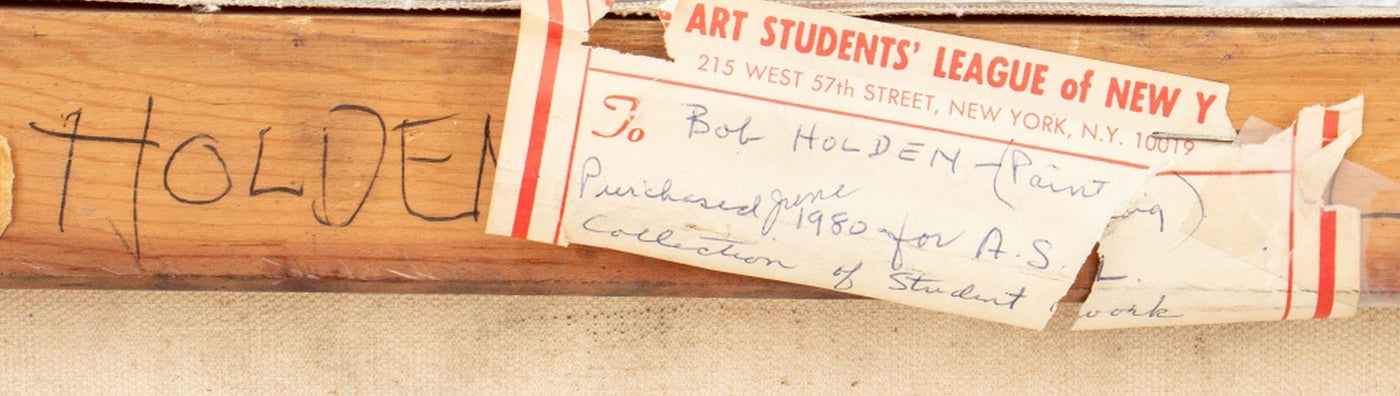 HOLDEN
ART STUDENTS' LEAGUE of NEW Y
215 WEST 57th STREET, NEW YORK, N.Y. 10019
To Bob HOLDEN - (Painting)
Purchased June
1980 for A.S.L.
Collection of Student work